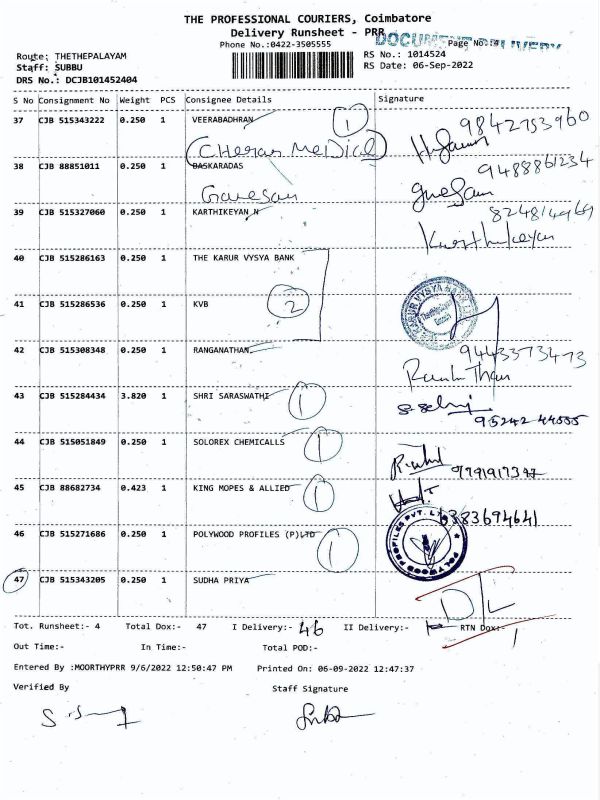 THE PROFESSIONAL COURIERS, Coimbatore
Delivery Runsheet - PRR
DOCUMENT DELIVERY
Phone No.:0422-3505555
Page No:
Route: THETHEPALAYAM
RS No.: 1014524
Staff: SUBBU
RS Date: 06-Sep-2022
DRS No.: DCJB101452404
S No Consignment No Weight PCS Consignee Details Signature
37 CJB 515343222 0.250 1 VEERABADHRAN 1 9842753960
Cheran Medical
38 CJB 88851011 0.250 1 BASKARADAS 9488861234
Ganesan
39 CJB 515327060 0.250 1 KARTHIKEYAN N
Karthikeyan
40 CJB 515286163 0.250 1 THE KARUR VYSYA BANK
41 CJB 515286536 0.250 1 KVB 2
42 CJB 515308348 0.250 1 RANGANATHAN 9443573473
43 CJB 515284434 3.820 1 SHRI SARASWATHI 1
95242 44555
44 CJB 515051849 0.250 1 SOLOREX CHEMICALLS 1
45 CJB 88682734 0.423 1 KING MOPES & ALLIED 1
6383694641
46 CJB 515271686 0.250 1 POLYWOOD PROFILES (P)LTD 1
POLYWOOD PROFILES PVT. LTD
47 CJB 515343205 0.250 1 SUDHA PRIYA
D/L
Tot. Runsheet:- 4 Total Dox:- 47 I Delivery:- 46 II Delivery:- RTN Dox:- 1
Out Time:- In Time:- Total POD:-
Entered By :MOORTHYPRR 9/6/2022 12:50:47 PM Printed On: 06-09-2022 12:47:37
Verified By Staff Signature